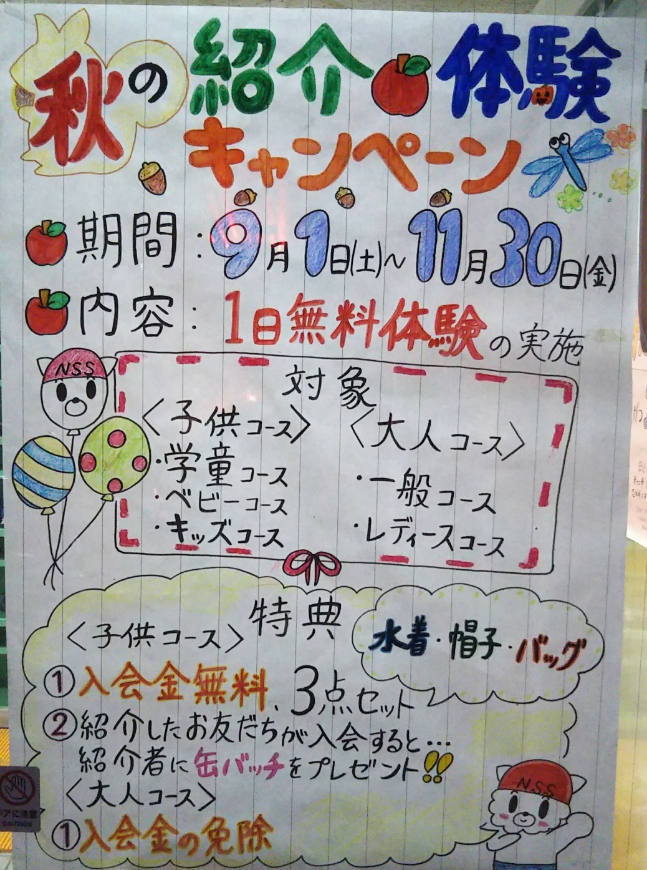 秋の紹介体験
キャンペーン
期間:9月1日(土)~11月30日(金)
内容:1日無料体験の実施
NSS
対象
〈子供コース〉
・学童コース
・ベビーコース
・キッズコース
〈大人コース〉
・一般コース
・レディースコース
特典
〈子供コース〉
水着・帽子・バッグ
①入会金無料、3点セット
②紹介したお友だちが入会すると…
紹介者に缶バッチをプレゼント!!
〈大人コース〉
①入会金の免除
NSS